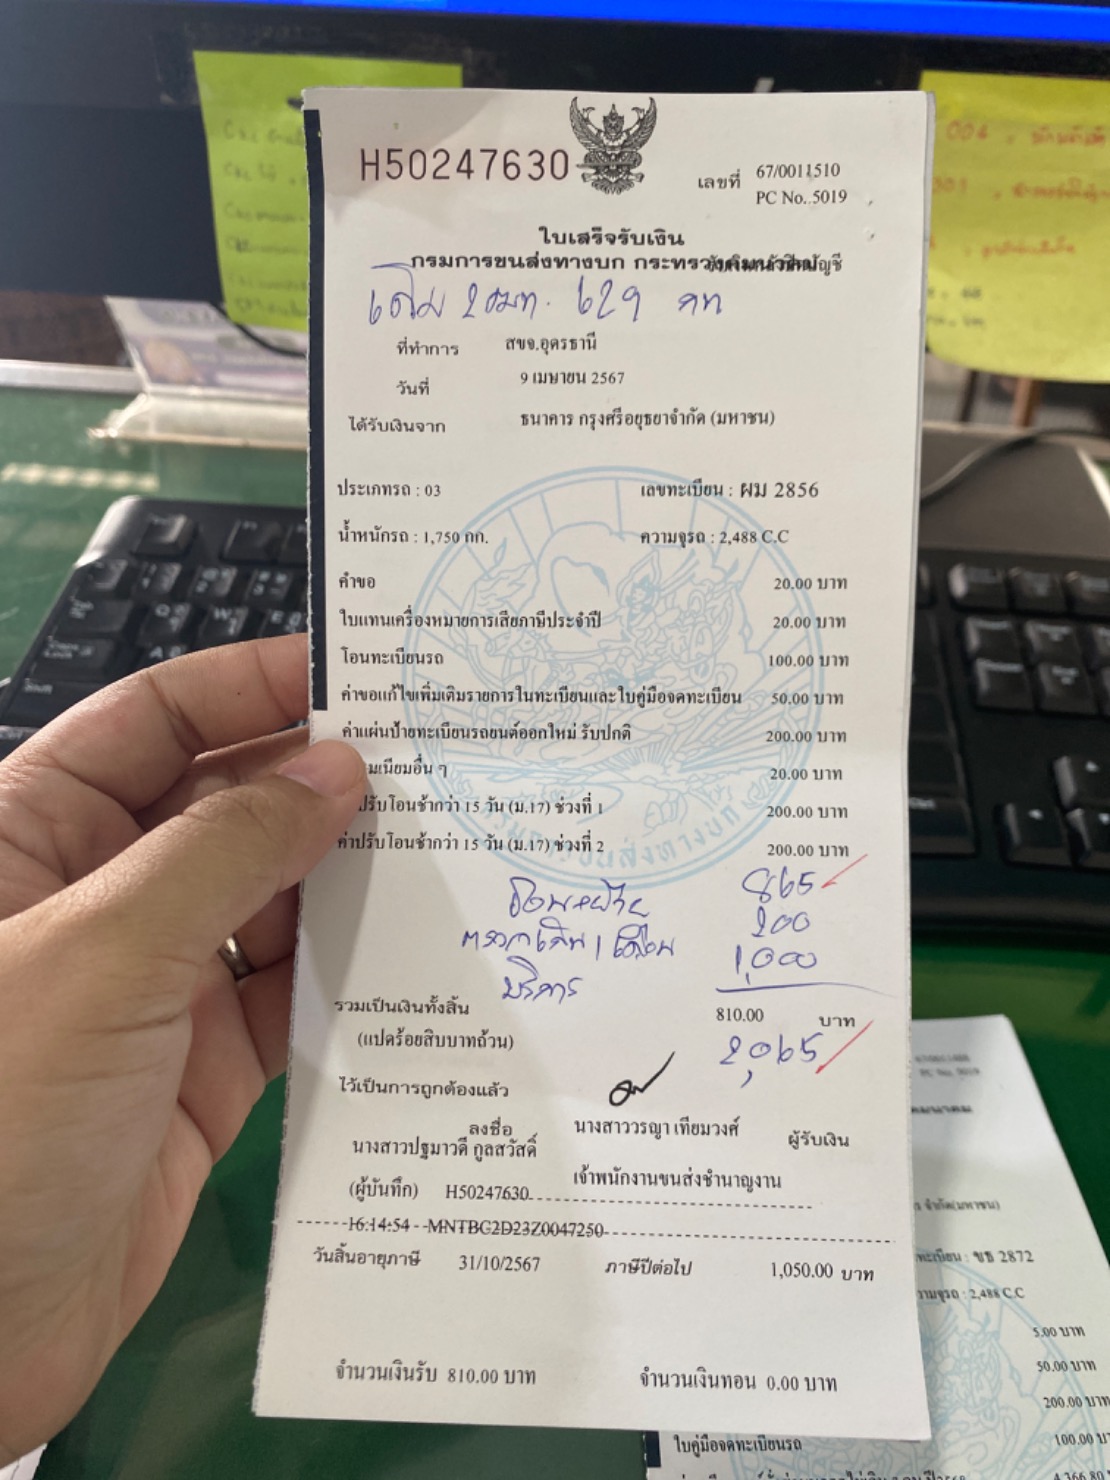 H50247630
เลขที่ 67/0011510
PC No..5019
ใบเสร็จรับเงิน
กรมการขนส่งทางบก กระทรวงคมนาคม
เดิม 2 ขมท. 629 กท
ที่ทำการ สขจ.อุดรธานี
วันที่ 9 เมษายน 2567
ได้รับเงินจาก ธนาคาร กรุงศรีอยุธยาจำกัด (มหาชน)
ประเภทรถ : 03 เลขทะเบียน : ผม 2856
น้ำหนักรถ : 1,750 กก. ความจุรถ : 2,488 C.C
คำขอ 20.00 บาท
ใบแทนเครื่องหมายการเสียภาษีประจำปี 20.00 บาท
โอนทะเบียนรถ 100.00 บาท
ค่าขอแก้ไขเพิ่มเติมรายการในทะเบียนและใบคู่มือจดทะเบียน 50.00 บาท
ค่าแผ่นป้ายทะเบียนรถยนต์ออกใหม่ รับปกติ 200.00 บาท
มเนียมอื่น ๆ 20.00 บาท
ปรับโอนช้ากว่า 15 วัน (ม.17) ช่วงที่ 1 200.00 บาท
ค่าปรับโอนช้ากว่า 15 วัน (ม.17) ช่วงที่ 2 200.00 บาท
865
200
บริการ 1,000
รวมเป็นเงินทั้งสิ้น 810.00 บาท
(แปดร้อยสิบบาทถ้วน) 2,065
ไว้เป็นการถูกต้องแล้ว
ลงชื่อ นางสาววรญา เทียมวงศ์ ผู้รับเงิน
นางสาวปฐมาวดี กูลสวัสดิ์
เจ้าพนักงานขนส่งชำนาญงาน
(ผู้บันทึก) H50247630
16:14:54 MNTBC2D23Z0047250
วันสิ้นอายุภาษี 31/10/2567 ภาษีปีต่อไป 1,050.00 บาท
จำนวนเงินรับ 810.00 บาท จำนวนเงินทอน 0.00 บาท
PC No. 5019
ทะเบียน : ขธ 2872
ความจุรถ : 2,488 C.C
5.00 บาท
50.00 บาท
200.00 บา
ใบคู่มือจดทะเบียนรถ 100.00 บา